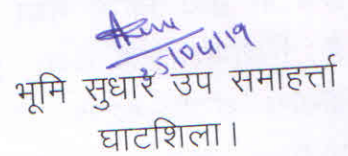 25/04/19
भूमि सुधार उप समाहर्त्ता
घाटशिला।